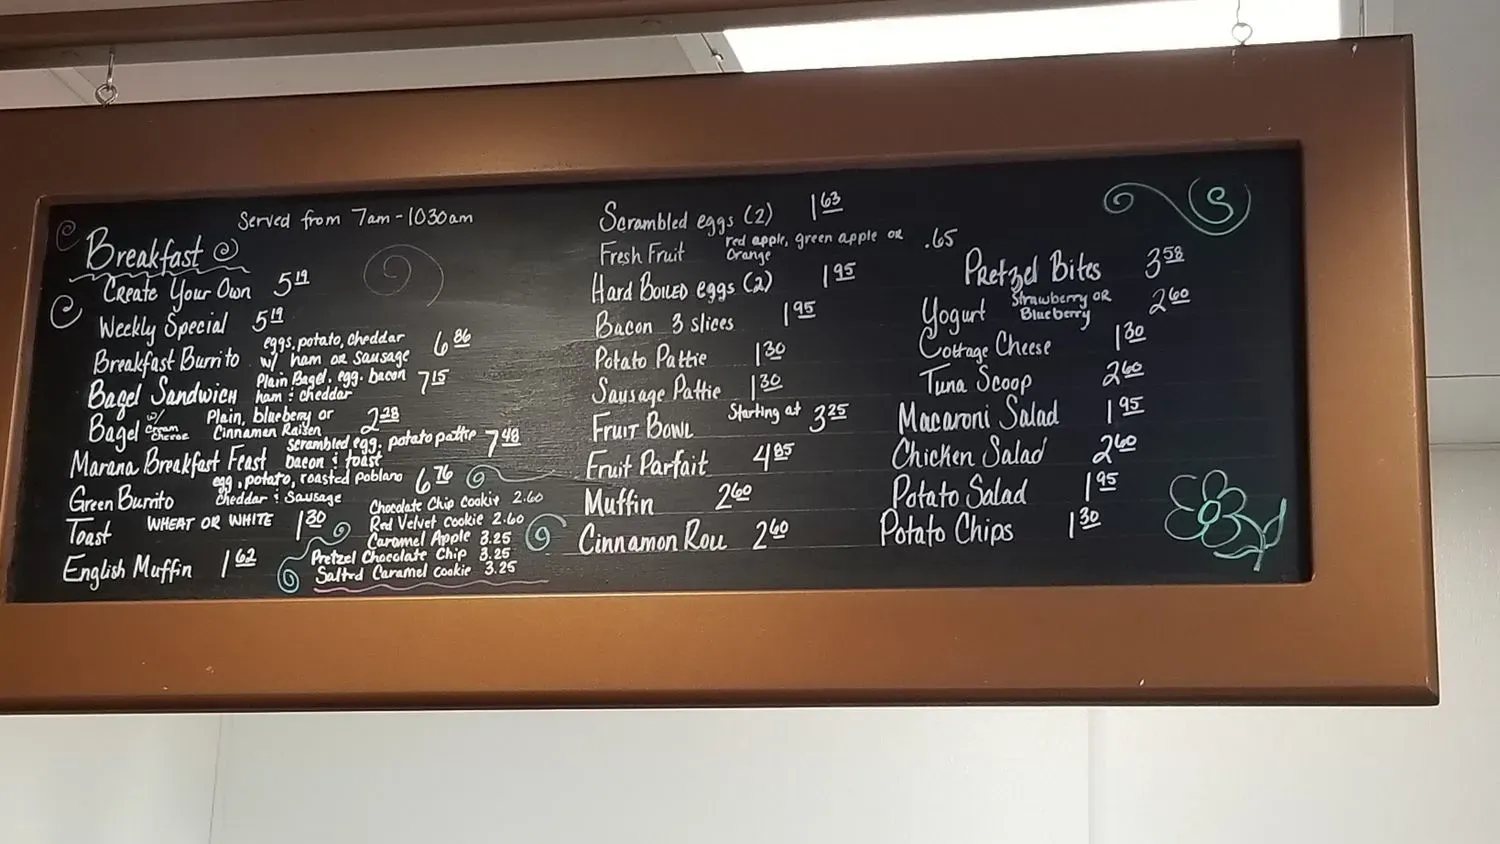 Served from 7am - 1030am
Breakfast
Create Your Own 5.19
Weekly Special 5.19
eggs, potato, cheddar
Breakfast Burrito w/ ham or sausage 6.86
Plain Bagel, egg, bacon
Bagel Sandwich ham & cheddar 7.15
Bagel w/ Cream Cheese Plain, blueberry or
Cinnamon Raisen 2.28
Scrambled egg, potato pattie
Marana Breakfast Feast bacon & toast 7.48
egg, potato, roasted poblano
Green Burrito cheddar & sausage 6.76
Toast WHEAT OR WHITE 1.30
English Muffin 1.62
Chocolate Chip Cookie 2.60
Red Velvet Cookie 2.60
Caramel Apple 3.25
Pretzel Chocolate Chip 3.25
Salted Caramel Cookie 3.25
Scrambled eggs (2) 1.63
Fresh Fruit red apple, green apple or
Orange .65
Hard Boiled eggs (2) 1.95
Bacon 3 slices 1.95
Potato Pattie 1.30
Sausage Pattie 1.30
Fruit Bowl Starting at 3.25
Fruit Parfait 4.85
Muffin 2.60
Cinnamon Roll 2.60
Pretzel Bites 3.58
Yogurt Strawberry or
Blueberry 2.60
Cottage Cheese 1.30
Tuna Scoop 2.60
Macaroni Salad 1.95
Chicken Salad 2.60
Potato Salad 1.95
Potato Chips 1.30